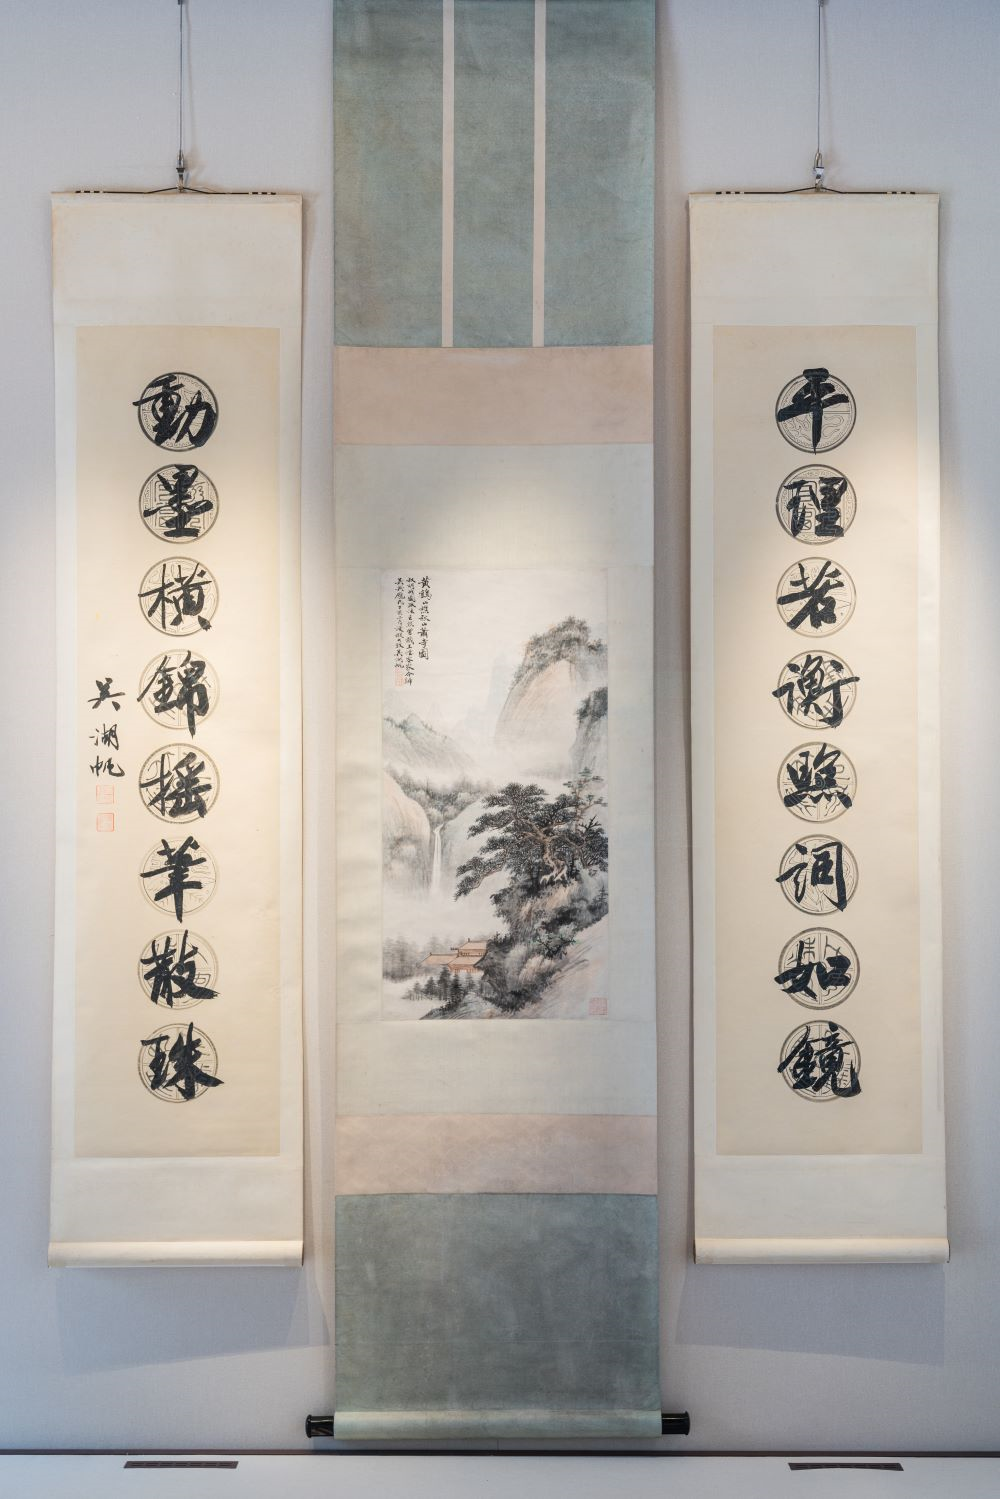 平理若衡照詞如鏡
動墨橫錦摇筆散珠
吳湖帆
黃鶴山樵秋山蕭寺圖